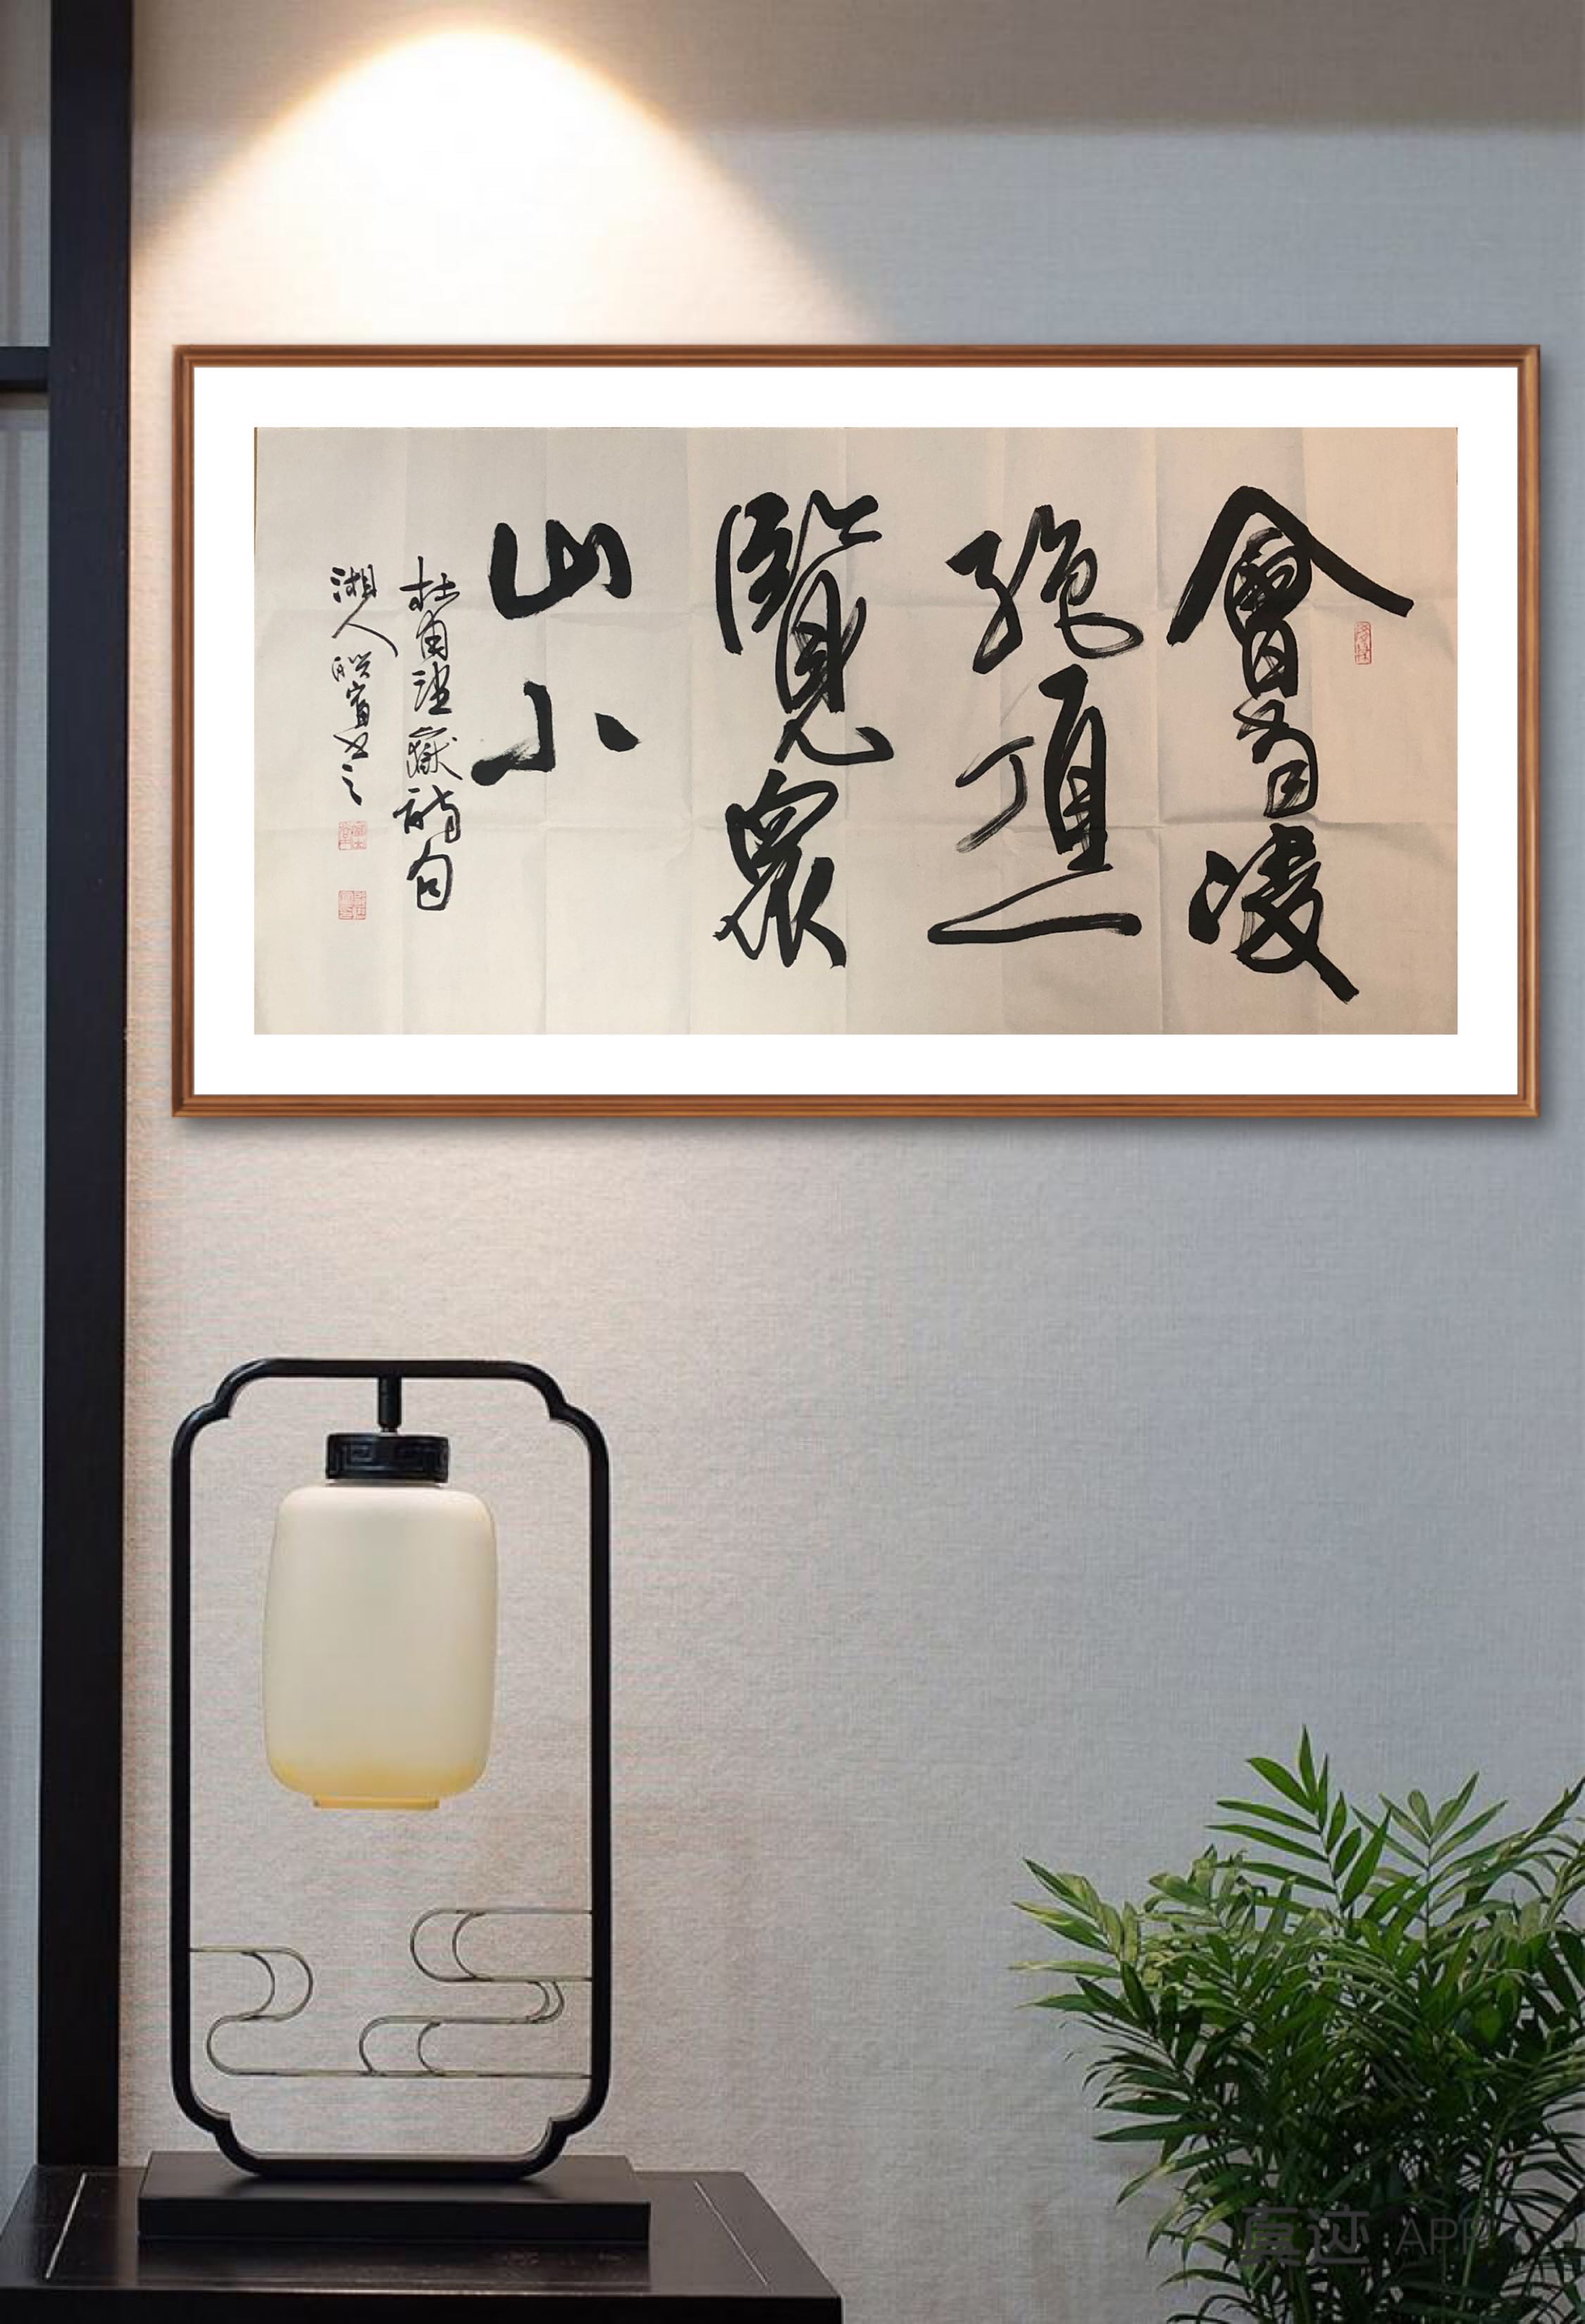 會當凌
絕頂一
覽眾
山小
杜甫望嶽詩句
湘人書之
真迹 APP